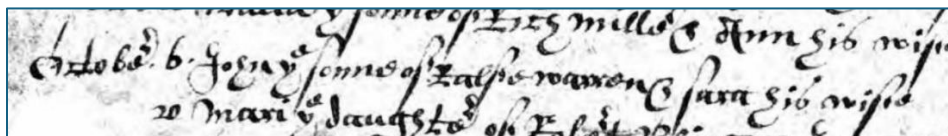 yᵉ sonne of Rich Millerˢ & Ann his wife
Octobᵉʳ. 6. John yᵉ sonne of Ralfe warren & sara his wife
Mari yᵉ daughtᵉʳ of